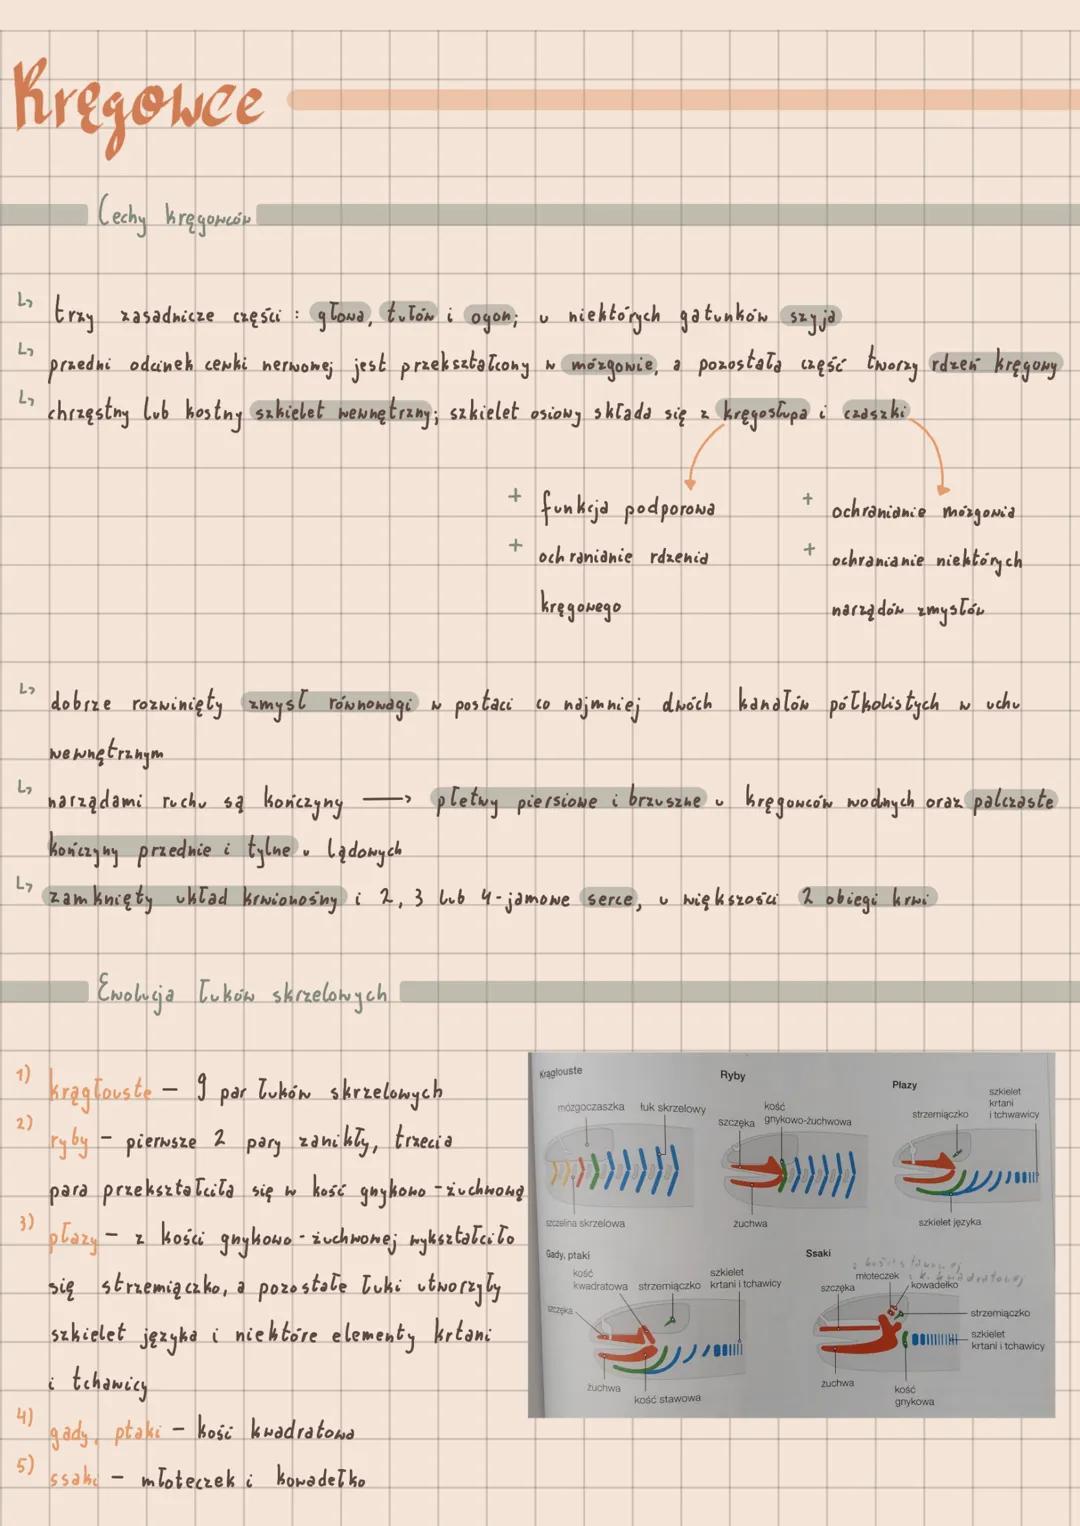 Kręgowce
Cechy kręgowców
↳ trzy zasadnicze części : głowa, tułów i ogon; u niektórych gatunków szyja
↳ przedni odcinek cewki nerwowej jest przekształcony w mózgowie, a pozostała część tworzy rdzeń kręgowy
↳ chrzęstny lub kostny szkielet wewnętrzny; szkielet osiowy składa się z kręgosłupa i czaszki
+ funkcja podporowa
+ ochranianie rdzenia
kręgowego
+ ochranianie mózgowia
+ ochranianie niektórych
narządów zmysłów
↳ dobrze rozwinięty zmysł równowagi w postaci co najmniej dwóch kanałów półkolistych w uchu
wewnętrznym
↳ narządami ruchu są kończyny → płetwy piersiowe i brzuszne u kręgowców wodnych oraz palczaste
kończyny przednie i tylne u lądowych
↳ zamknięty układ krwionośny i 2, 3 lub 4-jamowe serce, u większości 2 obiegi krwi
Ewolucja łuków skrzelowych
1) krągłouste – 9 par łuków skrzelowych
2) ryby – pierwsze 2 pary zanikły, trzecia
para przekształciła się w kość gnykowo-żuchwową
3) płazy – z kości gnykowo-żuchwowej wykształciło
się strzemiączko, a pozostałe łuki utworzyły
szkielet języka i niektóre elementy krtani
i tchawicy
4) gady, ptaki – kość kwadratowa
5) ssaki – młoteczek i kowadełko
Krągłouste
mózgoczaszka
łuk skrzelowy
szczelina skrzelowa
Ryby
szczęka
kość
gnykowo-żuchwowa
żuchwa
Płazy
strzemiączko
szkielet
krtani
i tchwawicy
szkielet języka
Gady, ptaki
kość
kwadratowa
strzemiączko
szkielet
krtani i tchawicy
szczęka
żuchwa
kość stawowa
Ssaki
z kości stawowej
młoteczek
z k. kwadratowej
szczęka
kowadełko
strzemiączko
szkielet
krtani i tchawicy
żuchwa
kość
gnykowa